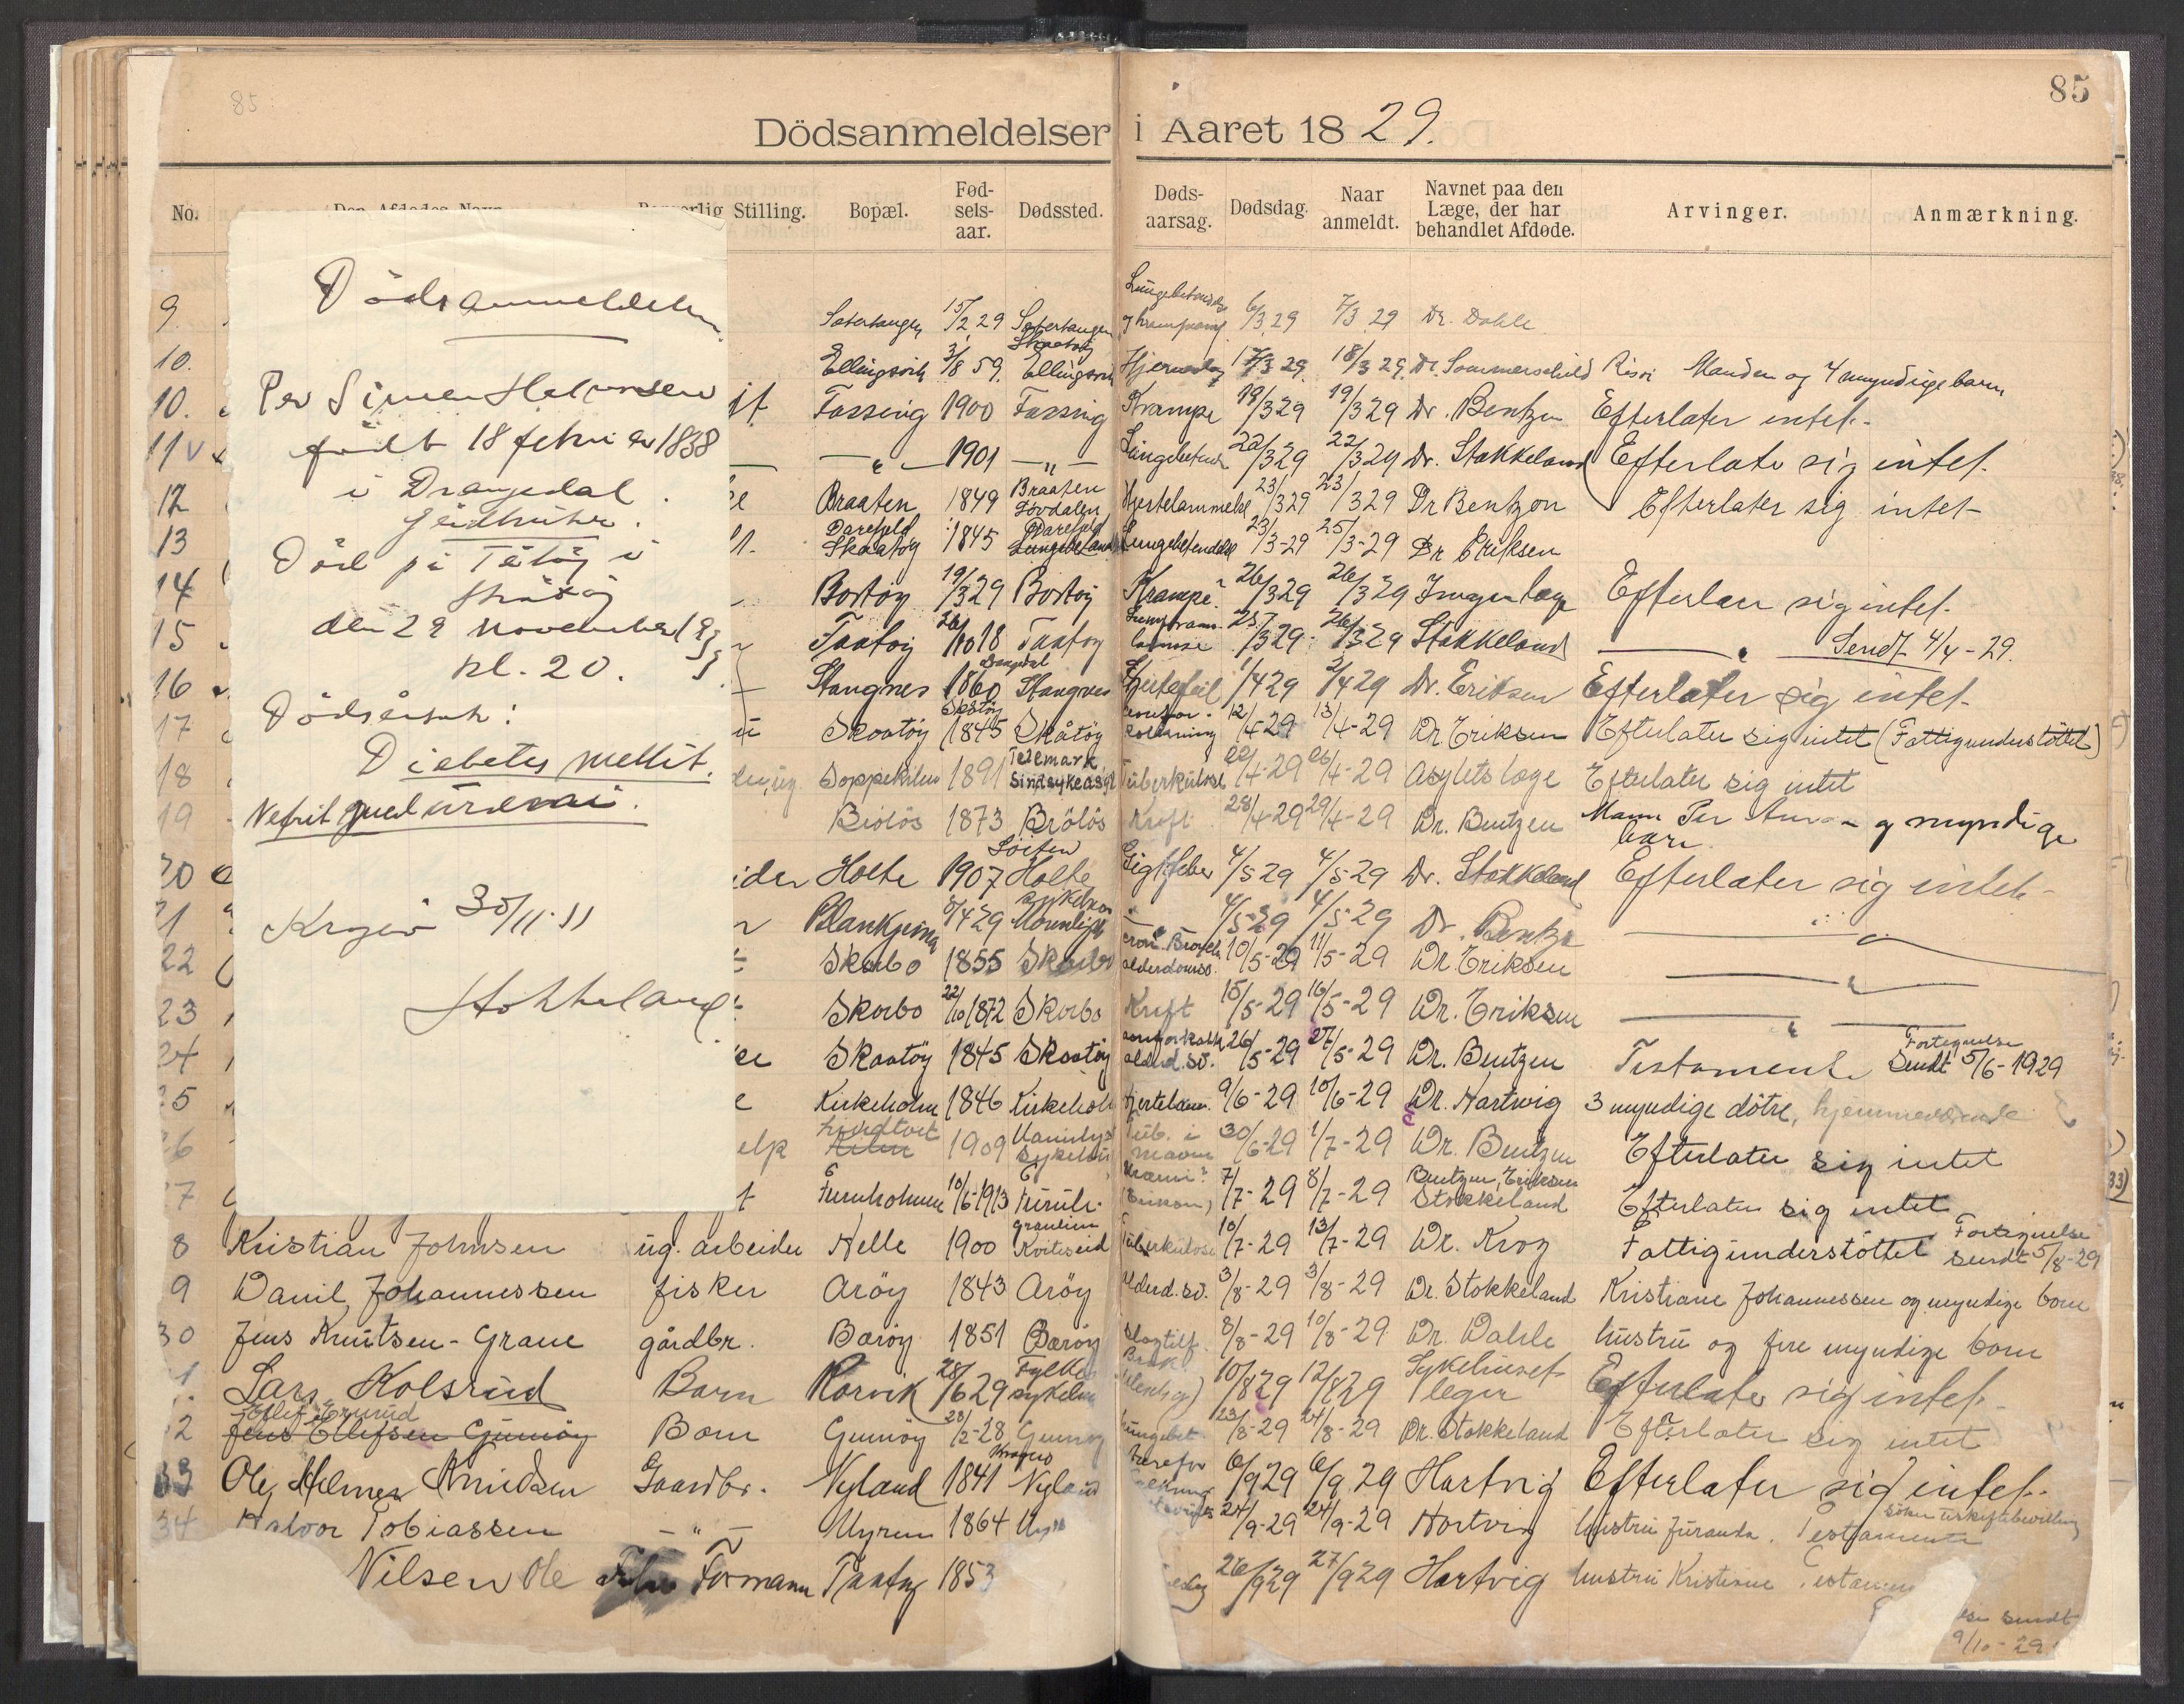 85
85
Dödsanmeldelser i Aaret 18 29.
No. Stilling. Bopæl. Fød-selsaar. Dødssted. Døds-aarsag. Dødsdag. Naar anmeldt. Navnet paa den Læge, der har behandlet Afdøde. Arvinger. Anmærkning.
Dödsanmeldelse
Per Simen Halvorsen
födt 18 februar 1838
i Drangedal.
Död på Tåtöy i
Skåtöy
den 29 november 1911
kl. 20.
Dödsårsak:
Diabetes mellit.
Nefrit med uremi.
Kragerö 30/11-11
Stokkeland
9. 15/2 29 6/3 29 7/3 29 Dr. Dahle
10. Ellingsvik 3/8 59. Ellingsvik 17/3 29. 18/3 29. Dr. Sommerschild Risör Manden og 4 myndige barn
10. Fossing 1900 Fossing Krampe 18/3 29 19/3 29 Dr. Bentzen Efterlater intet.-
11 — " — 1901 — " — Lungebetend 22/3 29 22/3 29 Dr. Stokkeland Efterlate sig intet.
12 Braaten 1849 Braaten Tövdalen Hjertelammelse 23/3 29 23/3 29 Dr Bentzon Efterlater sig intet-
13 Skaatöy 1845 Lungebetendelse 23/3-29 25/3-29 Dr Eriksen
14 Bortöy 19/3 29 Bortöy Krampe? 26/3 29 26/3 29 Ingen læge Efterlater sig intet.
15 Taatöy Taatöy 25/3 29. 26/3 29 Stokkeland — " — Sendt 4/4-29.
16 Stangnes 1860 Stangnes Hjertefeil 1/4 29 2/4 29 Dr. Eriksen Efterlater sig intet.
17 Skaatöy 1845 Skåtöy 12/4-29 13/4-29 Dr Eriksen Efterlater sig intet (Fattigunderstöttet)
18 Soppekilen 1891 Telemark Sindsykeasyl Tuberkulose 22/4-29 26/4-29 Asylets læge Efterlater sig intet
19 1873 Kreft 28/4-29 29/4-29 Dr. Bentzen Mann Per og myndige barn
20 Holte 1907 Holte Gigtfeber 4/5 29 4/5-29 Dr. Stokkeland Efterlater sig intet-
21 4/5-29 4/5-29 Dr. Bentzen — " —
22 Skarbo 1855 Skarbo 10/5-29 11/5-29 Dr. Eriksen — " —
23 Skarbo 22/10 1872 Skarbo Kreft 15/5-29 16/5-29 Dr. Eriksen — " —
24 Skaatöy 1845 Skaatöy 26/5-29 27/5-29 Dr. Bentzen Testamente Fortegnelse Sendt 5/6-1929
25 Kirkeholm 1846 Kirkeholm Hjertelam. 9/6-29 10/6-29 Dr. Hartvig 3 myndige dötre, hjemmeværende
26 1909 30/6-29 1/7-29 Dr. Bentzen Efterlater sig intet
27 Furuholmen 10/6-1913 7/7-29 8/7-29 Bentzen, Eriksen Stokkeland Efterlater sig intet
8 Kristian Johnsen ug. arbeider Helle 1900 Kviteseid Tuberkulose 10/7-29 13/7-29 Dr. Krog Fattigunderstöttet Fortegnelse sendt 5/8-29
9 Danil Johannessen fisker Aröy 1843 Aröy Alderd.sv. 3/8-29 3/8-29 Dr. Stokkeland Kristiane Johannessen og myndige born
30 Jens Knutsen-Grane gårdbr. Baröy 1851 Baröy Slagtilf. 8/8-29 10/8-29 Dr. Dahle hustru og fire myndige born
1 Lars Kolsrud Barn Rörvik 28/6 29 Fylkes sykehus 10/8 29 12/8 29 Sykehusets leger Efterlater sig intet.
2 Jens Ellefsen Gumöy Born Gumöy 28/2-28 Gumöy Lungebet. 23/8-29 24/8-29 Dr. Stokkeland Efterlater sig intet
33 Ole Helmer Knudsen Gaardbr. Nyland 1841 Nyland 6/9 29 6/9 29 Hartvig Efterlater sig intet.
34 Halvor Tobiassen — " — Myren 1864 24/9-29 24/9-29 Hartvig hustru Juranda. Testamente
Nilsen Ole Formann Taatöy 1853 26/9 29 27/9 29 Hartvig hustru Kristine
sendt
9/10-29